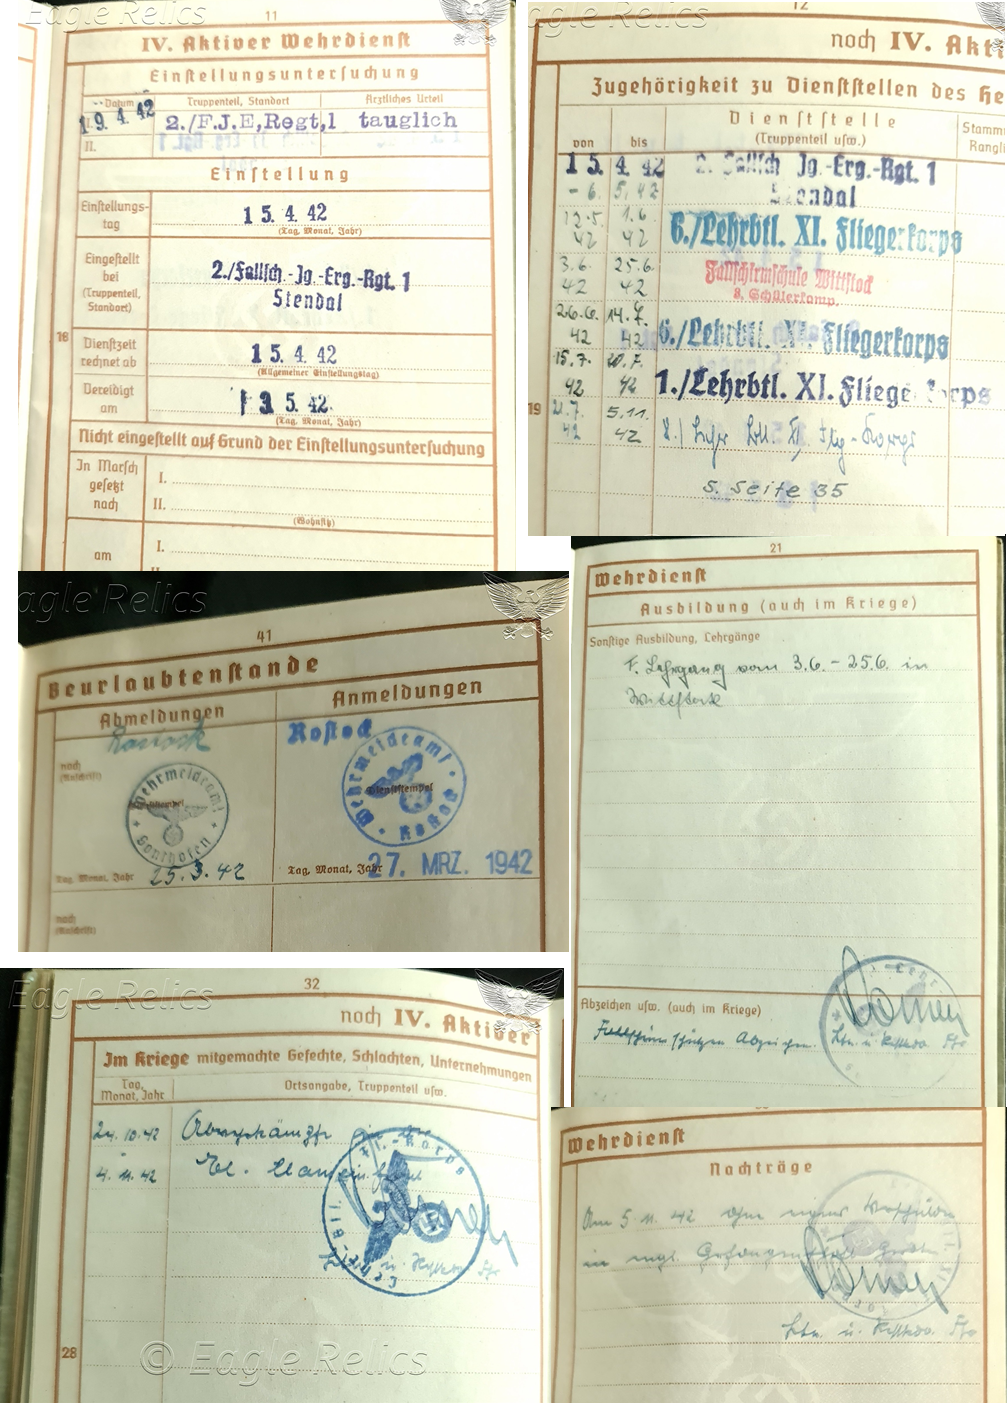 Eagle Relics
11
IV. Aktiver Wehrdienst
Einstellungsuntersuchung
Datum
Truppenteil, Standort
Ärztliches Urteil
I.
19. 4. 42
2./F.J.E,Regt,1 tauglich
II.
Einstellung
Einstellungs-
tag
15. 4. 42
(Tag, Monat, Jahr)
Eingestellt
bei
(Truppenteil,
Standort)
2./Fallsch.-Jg.-Erg.-Rgt. 1
Stendal
18
Dienstzeit
rechnet ab
15. 4. 42
(Allgemeiner Einstellungstag)
Vereidigt
am
13. 5. 42.
(Tag, Monat, Jahr)
Nicht eingestellt auf Grund der Einstellungsuntersuchung
In Marsch
gesetzt
nach
I.
II.
(Wohnsitz)
am
I.
Eagle Relics
12
noch IV. Akti
Zugehörigkeit zu Dienststellen des He
von
bis
Dienststelle
(Truppenteil usw.)
Stamm
Rangli
15. 4. 42 2. Fallsch Jg.-Erg.-Rgt. 1
- 6. 5. 42 Stendal
12.5. 42 1.6. 42 6./Lehrbtl. XI. Fliegerkorps
3.6. 42 25.6. 42 Fallschirmschule Wittstock
8. Schülerkomp.
26.6. 42 14.7. 42 6./Lehrbtl. XI. Fliegerkorps
15.7. 42 20.7. 42 1./Lehrbtl. XI. Fliegerkorps
19
21.7. 42 5.11. 42 8./Lehr Btl. XI Flg-Korps
S. Seite 35
Eagle Relics
41
Beurlaubtenstande
Abmeldungen
Anmeldungen
Rostock
Rostock
nach
(Anschrift)
Wehrmeldeamt
Sonthofen
Dienststempel
Wehrmeldeamt
Rostock
Tag, Monat, Jahr 25.3.42
Tag, Monat, Jahr 27. MRZ. 1942
nach
(Anschrift)
21
Wehrdienst
Ausbildung (auch im Kriege)
Sonstige Ausbildung, Lehrgänge
F. Lehrgang vom 3.6. - 25.6. in
Wittstock
Abzeichen usw. (auch im Kriege)
Fallschirmschützen Abzeichen.
Ltn. u. Kp.
Eagle Relics
32
noch IV. Aktiver
Im Kriege mitgemachte Gefechte, Schlachten, Unternehmungen
Tag,
Monat, Jahr
Ortsangabe, Truppenteil usw.
24.10.42 Abwehrkämpfe
4.11.42 El.
28
© Eagle Relics
Wehrdienst
Nachträge
Am 5.11.42 ohne eigenes Verschulden
in engl. Gefangenschaft geraten
Ltn. u.